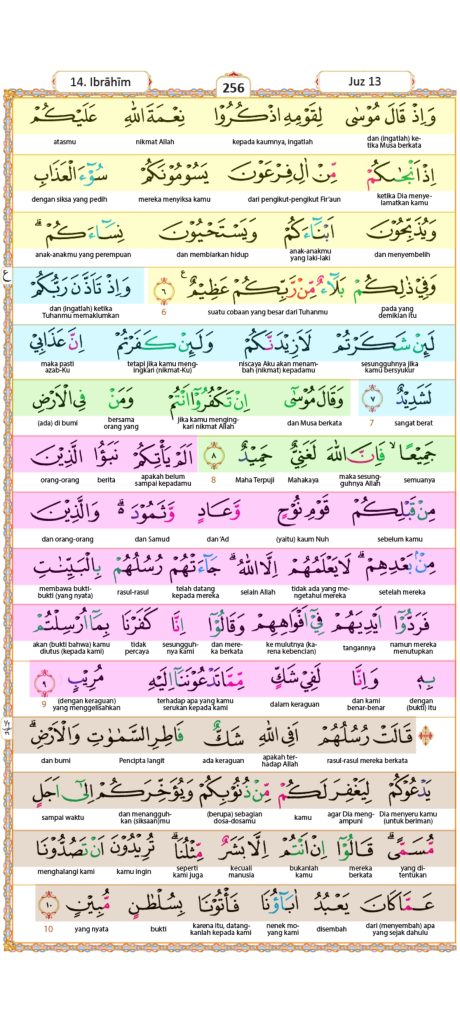 14. Ibrāhīm
256
Juz 13
وَاِذْ قَالَ مُوْسٰى لِقَوْمِهِ اذْكُرُوْا نِعْمَةَ اللّٰهِ عَلَيْكُمْ
dan (ingatlah) ke-tika Musa berkata kepada kaumnya, ingatlah nikmat Allah atasmu
اِذْ اَنْجٰىكُمْ مِّنْ اٰلِ فِرْعَوْنَ يَسُوْمُوْنَكُمْ سُوْۤءَ الْعَذَابِ
ketika Dia menye-lamatkan kamu dari pengikut-pengikut Fir'aun mereka menyiksa kamu dengan siksa yang pedih
وَيُذَبِّحُوْنَ اَبْنَاۤءَكُمْ وَيَسْتَحْيُوْنَ نِسَاۤءَكُمْ ۗ
dan menyembelih anak-anakmu yang laki-laki dan membiarkan hidup anak-anakmu yang perempuan
ع
وَفِيْ ذٰلِكُمْ بَلَاۤءٌ مِّنْ رَّبِّكُمْ عَظِيْمٌ ࣖ ٦ وَاِذْ تَاَذَّنَ رَبُّكُمْ
pada yang demikian itu suatu cobaan yang besar dari Tuhanmu 6 dan (ingatlah) ketika Tuhanmu memaklumkan
لَىِٕنْ شَكَرْتُمْ لَاَزِيْدَنَّكُمْ وَلَىِٕنْ كَفَرْتُمْ اِنَّ عَذَابِيْ
sesungguhnya jika kamu bersyukur niscaya Aku akan menam-bah (nikmat) kepadamu tetapi jika kamu meng-ingkari (nikmat-Ku) maka pasti azab-Ku
لَشَدِيْدٌ ٧ وَقَالَ مُوْسٰٓى اِنْ تَكْفُرُوْٓا اَنْتُمْ وَمَنْ فِى الْاَرْضِ
sangat berat 7 dan Musa berkata jika kamu menging-kari nikmat Allah bersama orang yang (ada) di bumi
جَمِيْعًا ۙ فَاِنَّ اللّٰهَ لَغَنِيٌّ حَمِيْدٌ ٨ اَلَمْ يَأْتِكُمْ نَبَؤُا الَّذِيْنَ
semuanya maka sesung-guhnya Allah Mahakaya Maha Terpuji 8 apakah belum sampai kepadamu berita orang-orang
مِنْ قَبْلِكُمْ قَوْمِ نُوْحٍ وَّعَادٍ وَّثَمُوْدَ ەۗ وَالَّذِيْنَ
sebelum kamu (yaitu) kaum Nuh dan 'Ad dan Samud dan orang-orang
مِنْۢ بَعْدِهِمْ ۗ لَا يَعْلَمُهُمْ اِلَّا اللّٰهُ ۗ جَاۤءَتْهُمْ رُسُلُهُمْ بِالْبَيِّنٰتِ
setelah mereka tidak ada yang me-ngetahui mereka selain Allah telah datang kepada mereka rasul-rasul membawa bukti-bukti (yang nyata)
فَرَدُّوْٓا اَيْدِيَهُمْ فِيْٓ اَفْوَاهِهِمْ وَقَالُوْٓا اِنَّا كَفَرْنَا بِمَآ اُرْسِلْتُمْ
namun mereka menutupkan tangannya ke mulutnya (ka-rena kebencian) dan mere-ka berkata sesungguh-nya kami tidak percaya akan (bukti bahwa) kamu diutus (kepada kami)
بِهٖ وَاِنَّا لَفِيْ شَكٍّ مِّمَّا تَدْعُوْنَنَآ اِلَيْهِ مُرِيْبٍ ٩
dengan (bukti) itu dan kami benar-benar dalam keraguan terhadap apa yang kamu serukan kepada kami (dengan keraguan) yang menggelisahkan 9
قَالَتْ رُسُلُهُمْ اَفِى اللّٰهِ شَكٌّ فَاطِرِ السَّمٰوٰتِ وَالْاَرْضِ ۗ
rasul-rasul mereka berkata apakah ter-hadap Allah ada keraguan Pencipta langit dan bumi
يَدْعُوْكُمْ لِيَغْفِرَ لَكُمْ مِّنْ ذُنُوْبِكُمْ وَيُؤَخِّرَكُمْ اِلٰٓى اَجَلٍ
Dia menyeru kamu (untuk beriman) agar Dia meng-ampuni kamu (berupa) sebagian dosa-dosamu dan menangguh-kan (siksaan)mu sampai waktu
مُّسَمًّىۗ قَالُوْٓا اِنْ اَنْتُمْ اِلَّا بَشَرٌ مِّثْلُنَا ۗ تُرِيْدُوْنَ اَنْ تَصُدُّوْنَا
yang di-tentukan mereka berkata bukanlah kamu kecuali manusia seperti kami juga kamu ingin menghalangi kami
عَمَّا كَانَ يَعْبُدُ اٰبَاۤؤُنَا فَأْتُوْنَا بِسُلْطٰنٍ مُّبِيْنٍ ١٠
dari (menyembah) apa yang sejak dahulu disembah nenek mo-yang kami karena itu, datang-kanlah kepada kami bukti yang nyata 10